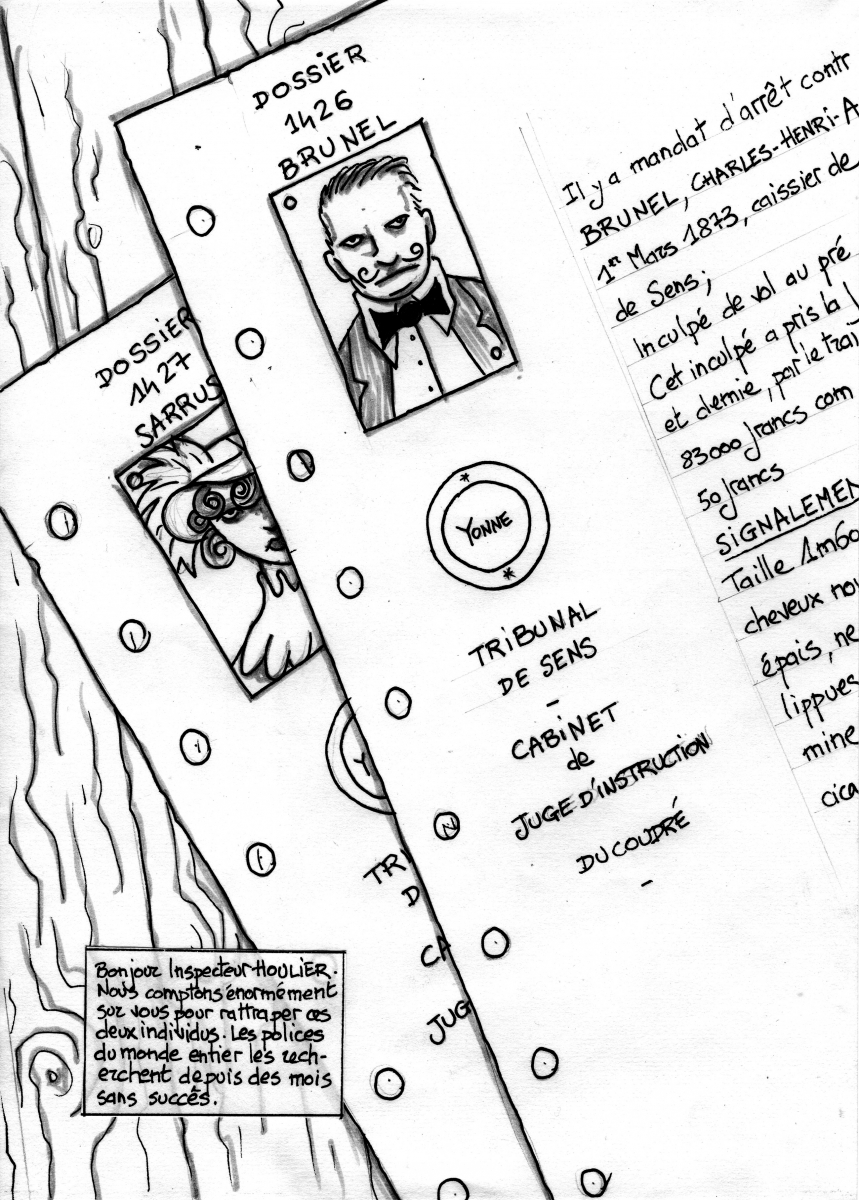 DOSSIER
1426
BRUNEL
Il y a mandat d'arrêt contr
BRUNEL, CHARLES-HENRI-A
1er Mars 1873, caissier de
de Sens;
Inculpé de vol au pré
Cet inculpé a pris la
et demie, par le trai
83000 francs com
50 francs
SIGNALEMEN
Taille 1m60
cheveux noi
épais, ne
lippues
mine
cica
YONNE
TRIBUNAL
DE SENS
-
CABINET
de
JUGE D'INSTRUCTION
DU COUDRÉ
-
DOSSIER
1427
SARRUS
Y
TRI
D
CA
JUG
Bonjour Inspecteur HOULIER.
Nous comptons énormément
sur vous pour rattraper ces
deux individus. Les polices
du monde entier les rech-
erchent depuis des mois
sans succès.